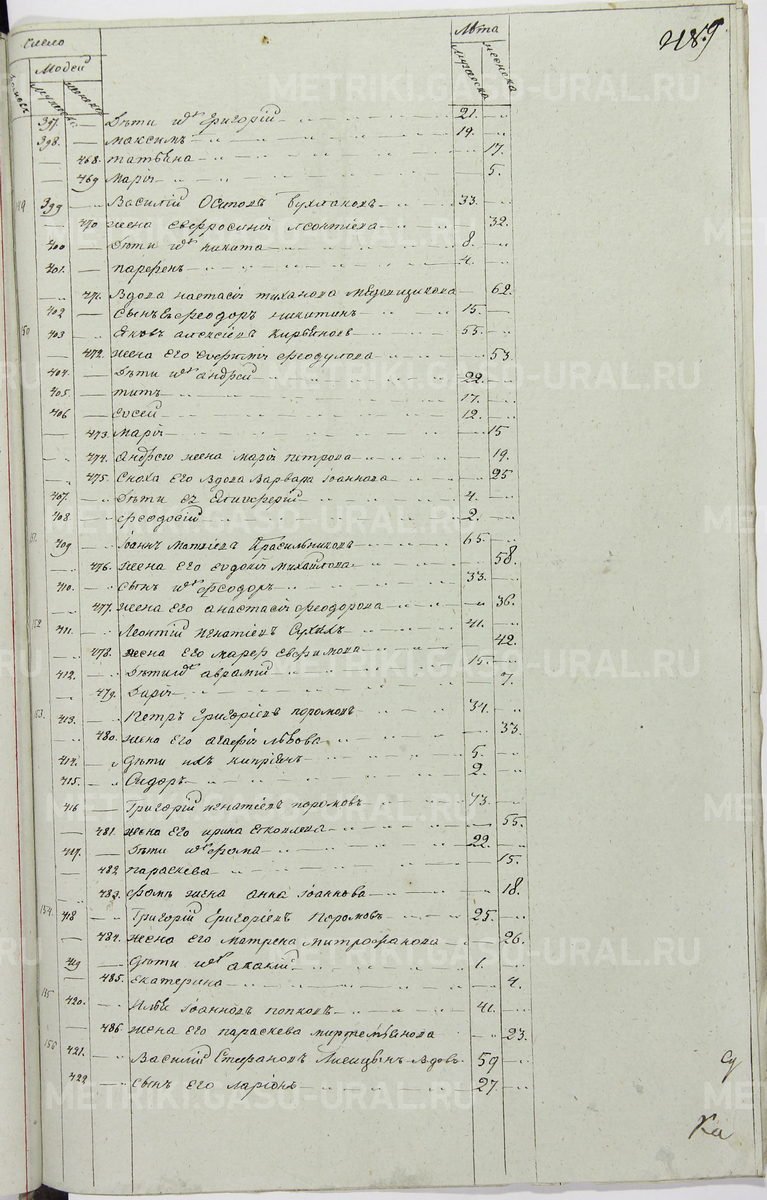 Число Лѣта 489
Людей
Мужеска Женска
397. — Дѣти ихъ Григорій 21.
398. — Максимъ 19.
— 468. Татьяна 17.
— 469 Марія 5.
149 399 — Василій Осиповъ 33.
— 470 жена Евфросинія Леонтіева 32.
400 — Дѣти ихъ Никита 8.
401. — Парфенъ 4.
471. Вдова Настасія Тиханова 62.
402 — Сынъ Ѳеодоръ Никитинъ 15.
150 403 — Яковъ Алексіевъ 55.
— 472. жена его Евфимія Ѳеодулова 53
404. — Дѣти ихъ Андрей 22.
405. — Титъ 17.
406 — Евсей 12.
— 473. Марія 15
474. Андрею жена Марія Петрова 19.
475. Сноха его вдова Варвара Іоаннова 25
407. Дѣти ея Елиоферій 4.
408. Ѳеодосій 2.
409 Іоаннъ Матвіевъ Красильниковъ 65.
476. Жена его Евдокія Михайлова 58.
410. Сынъ ихъ Ѳеодоръ 33.
477. жена его Анастасія Ѳеодорова 36.
152 411. Леонтій Игнатіевъ Сухихъ 41.
— 478. жена его Марфа Евфимова 42.
412. Дѣти ихъ Аврамій 15.
— 479. Дарія 7.
153. 413. Петръ Григоріевъ Поромовъ 34.
480. жена его Агафія Львова 33.
414. Дѣти ихъ Кипріянъ 5.
415. Сидоръ 2.
416 — Григорій Игнатіевъ Поромовъ 73.
— 481. жена его Ирина Яковлева 55.
417. — Дѣти ихъ Ѳома 22.
— 482 Параскева 15.
— 483. Ѳомѣ жена Анна Іоаннова 18.
154. 418 Григорій Григоріевъ Поромовъ 25.
— 484. жена его Матрена Митрофанова 26.
419 — Дѣти ихъ Акакій 1.
485. Екатерина 4.
155 420. Илья Іоанновъ Поповъ 41.
— 486. жена его Параскева 23.
156 421. Василій Стефановъ Лисицынъ вдовъ 59
422 — Сынъ его Ларіонъ 27
Ка
METRIKI.GASO-URAL.RU